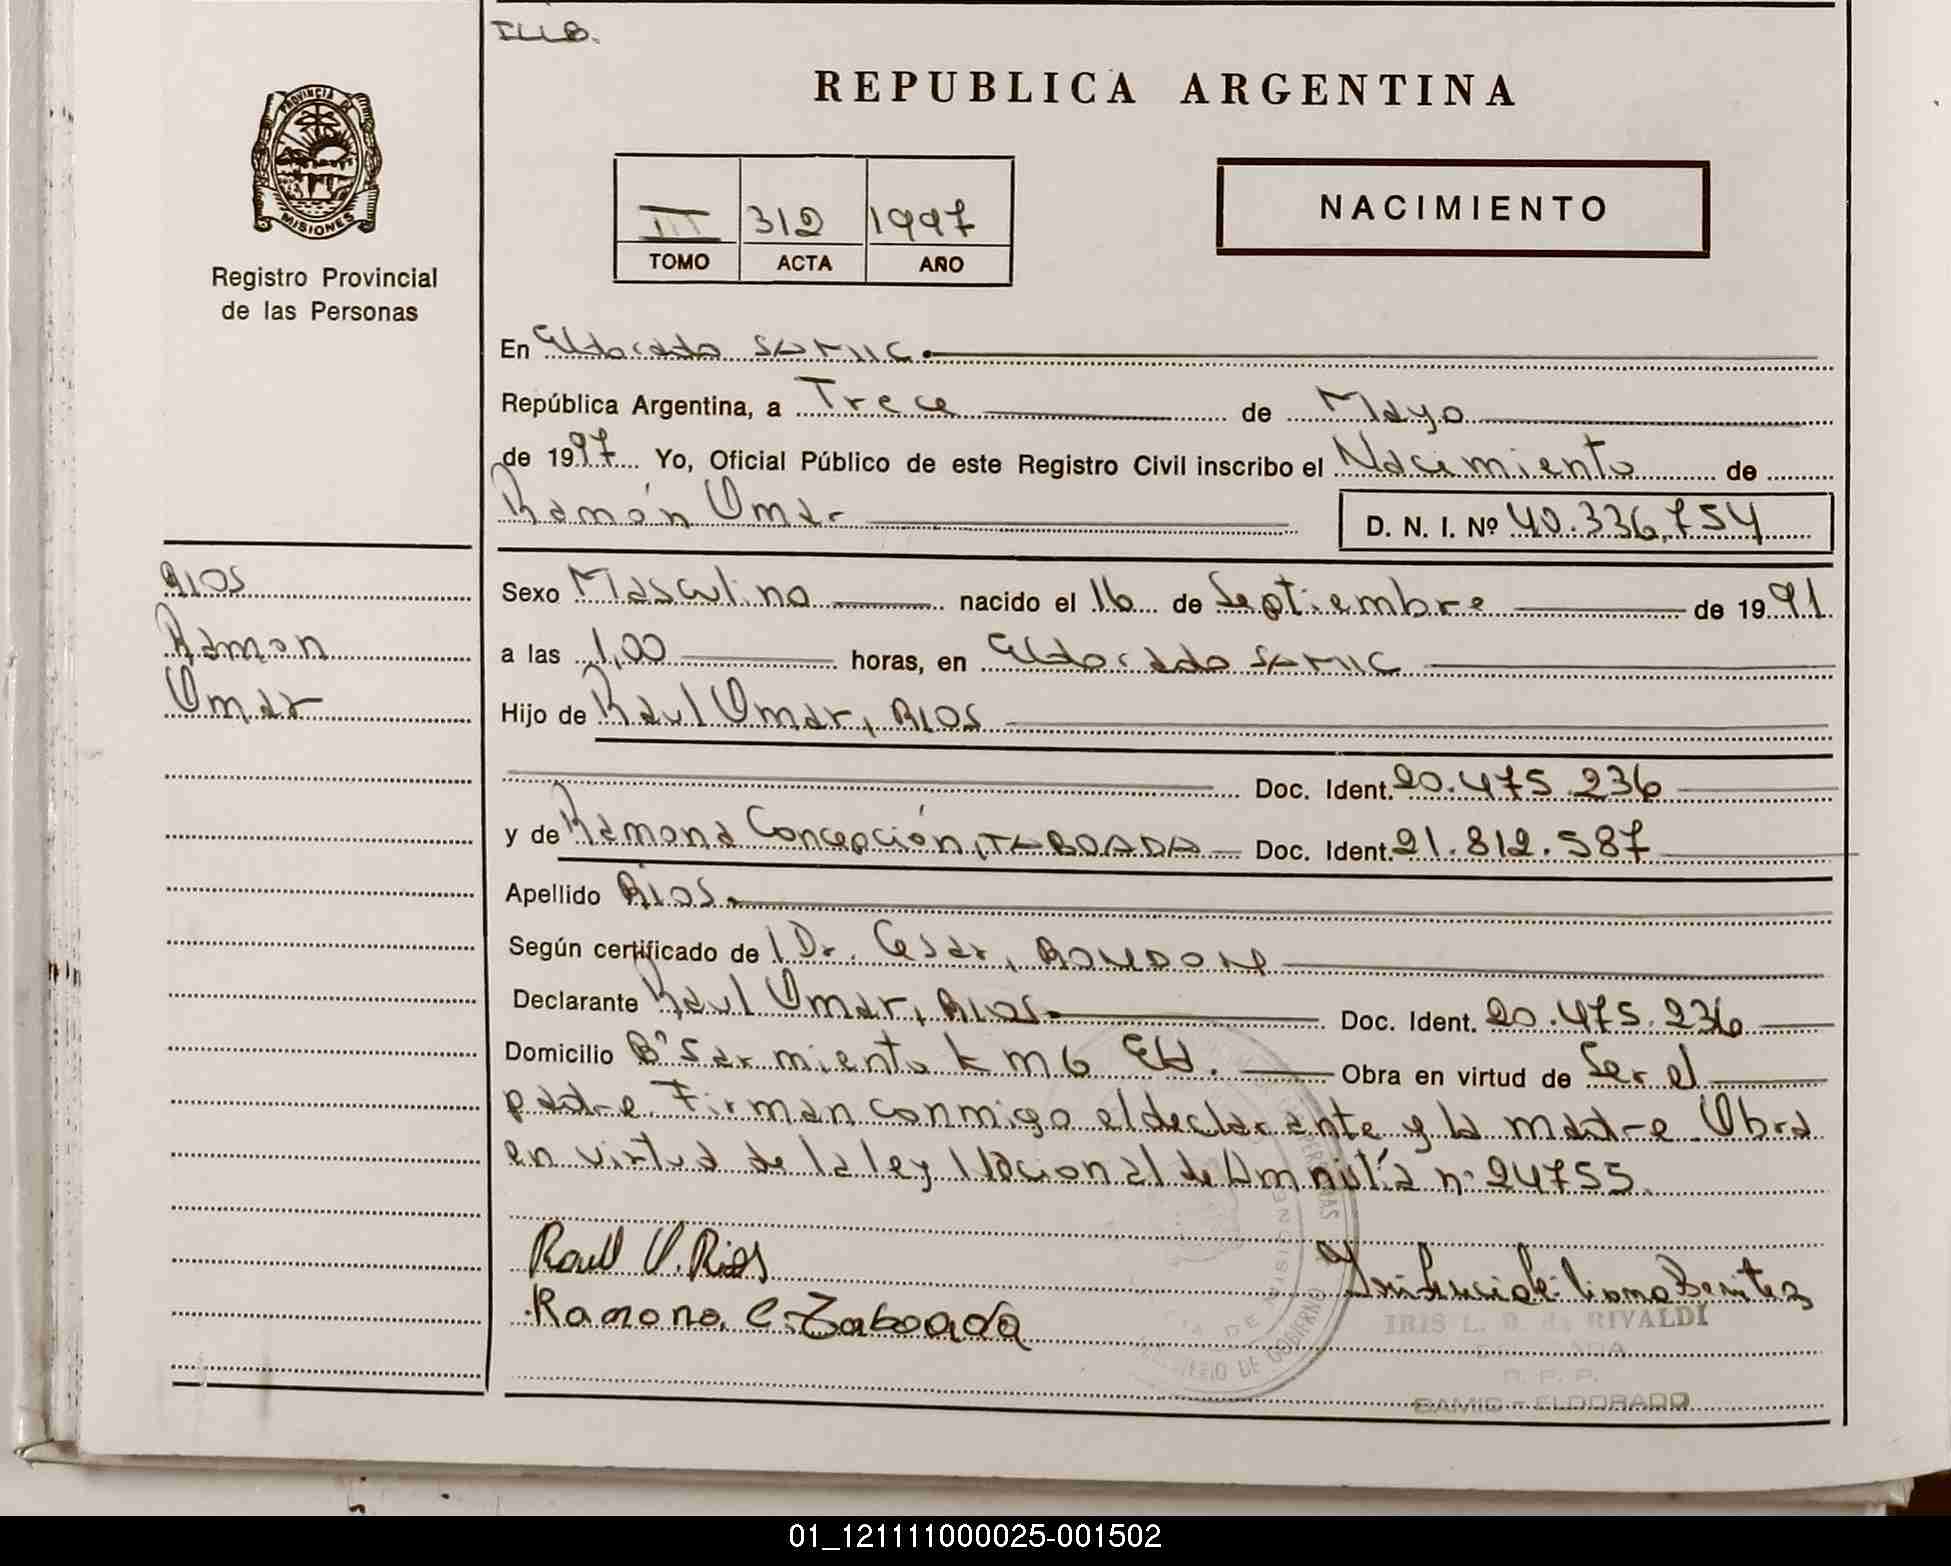 REPUBLICA ARGENTINA
PROVINCIA DE
MISIONES
Registro Provincial
de las Personas
III 312 1997
TOMO ACTA AÑO
NACIMIENTO
En Eldorado SAMIC.
República Argentina, a Trece de Mayo
de 1997 Yo, Oficial Público de este Registro Civil inscribo el Nacimiento de
Ramón Omar D. N. I. Nº 40.336.754
RIOS
Ramon
Omar
Sexo Masculino nacido el 16 de Septiembre de 1991
a las 1,00 horas, en Eldorado SAMIC
Hijo de Raul Omar, RIOS
Doc. Ident. 20.475.236
y de Ramona Concepción, TABOADA Doc. Ident. 21.812.587
Apellido RIOS.
Según certificado de l Dr. Cesar, RONDON
Declarante Raul Omar, RIOS. Doc. Ident. 20.475.236
Domicilio Bº Sarmiento km 6 Eld. Obra en virtud de Ser el
padre. Firman conmigo el declarante y la madre. Obra
en virtud de la ley Nacional de Amnistía nº 24755.
Raul O. Rios
Ramona C. Taboada
IRIS L. B. de RIVALDI
R. P. P.
SAMIC - ELDORADO
01_121111000025-001502